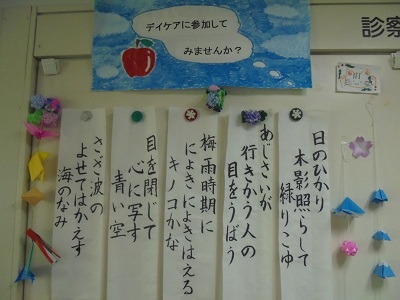 デイケアに参加して
みませんか?
診察
日のひかり
木影照らして
緑りこゆ
あじさいが
行きかう人の
目をうばう
梅雨時期に
にょきにょきはえる
キノコかな
目を閉じて
心に写す
青い空
さざ波の
よせてはかえす
海のなみ